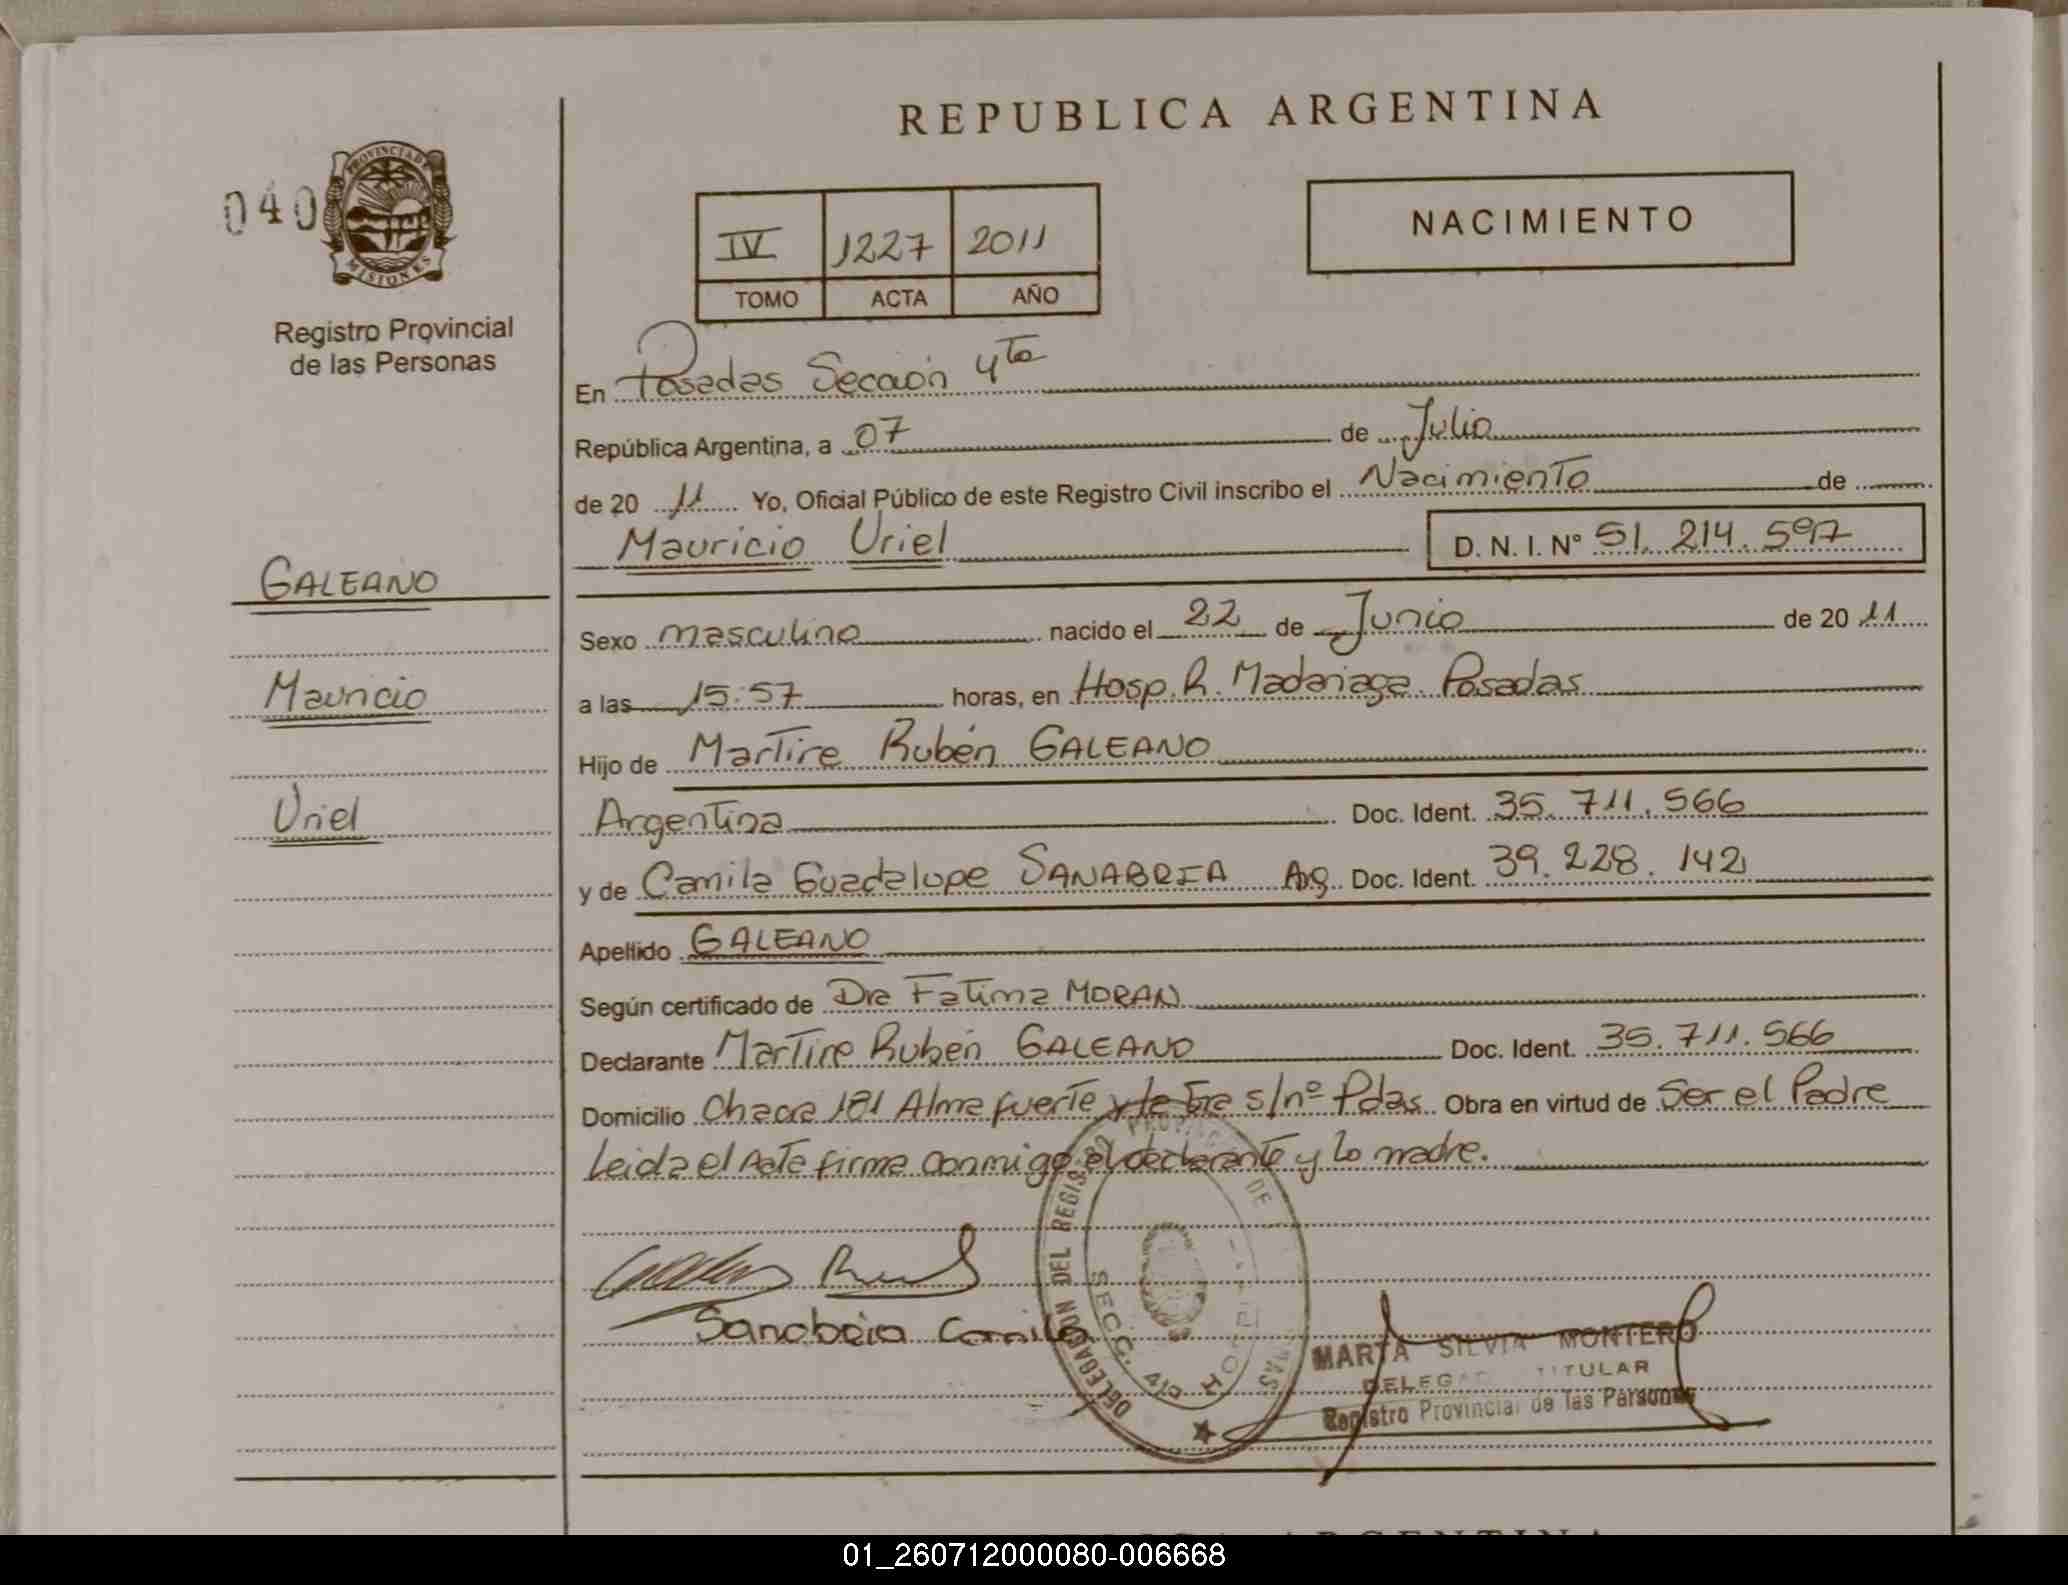 REPUBLICA ARGENTINA
040
PROVINCIA DE
MISIONES
Registro Provincial
de las Personas
NACIMIENTO
IV 1227 2011
TOMO ACTA AÑO
En Posadas Sección 4ta
República Argentina, a 07 de Julio
de 20 11 Yo, Oficial Público de este Registro Civil inscribo el Nacimiento de
Mauricio Uriel D. N. I. Nº 51.214.597
GALEANO
Mauricio
Uriel
Sexo masculino nacido el 22 de Junio de 20 11
a las 15:57 horas, en Hosp. R. Madariaga Posadas
Hijo de Martire Rubén GALEANO
Argentina Doc. Ident. 35.711.566
y de Camila Guadalupe SANABRIA Arg. Doc. Ident. 39.228.142
Apellido GALEANO
Según certificado de Dra Fatima MORAN
Declarante Martire Rubén GALEANO Doc. Ident. 35.711.566
Domicilio Chacra 181 Alma fuerte y s/nº Pdas Obra en virtud de Ser el Padre
Leida el Acta firma conmigo el declarante y la madre.
Sanabria Camila
DELEGACION DEL REGISTRO PROVINC DE
SECC. 4ta
MARTA SILVIA MONTERO
TITULAR
Registro Provincial de las Personas
ARGENTINA
01_260712000080-006668